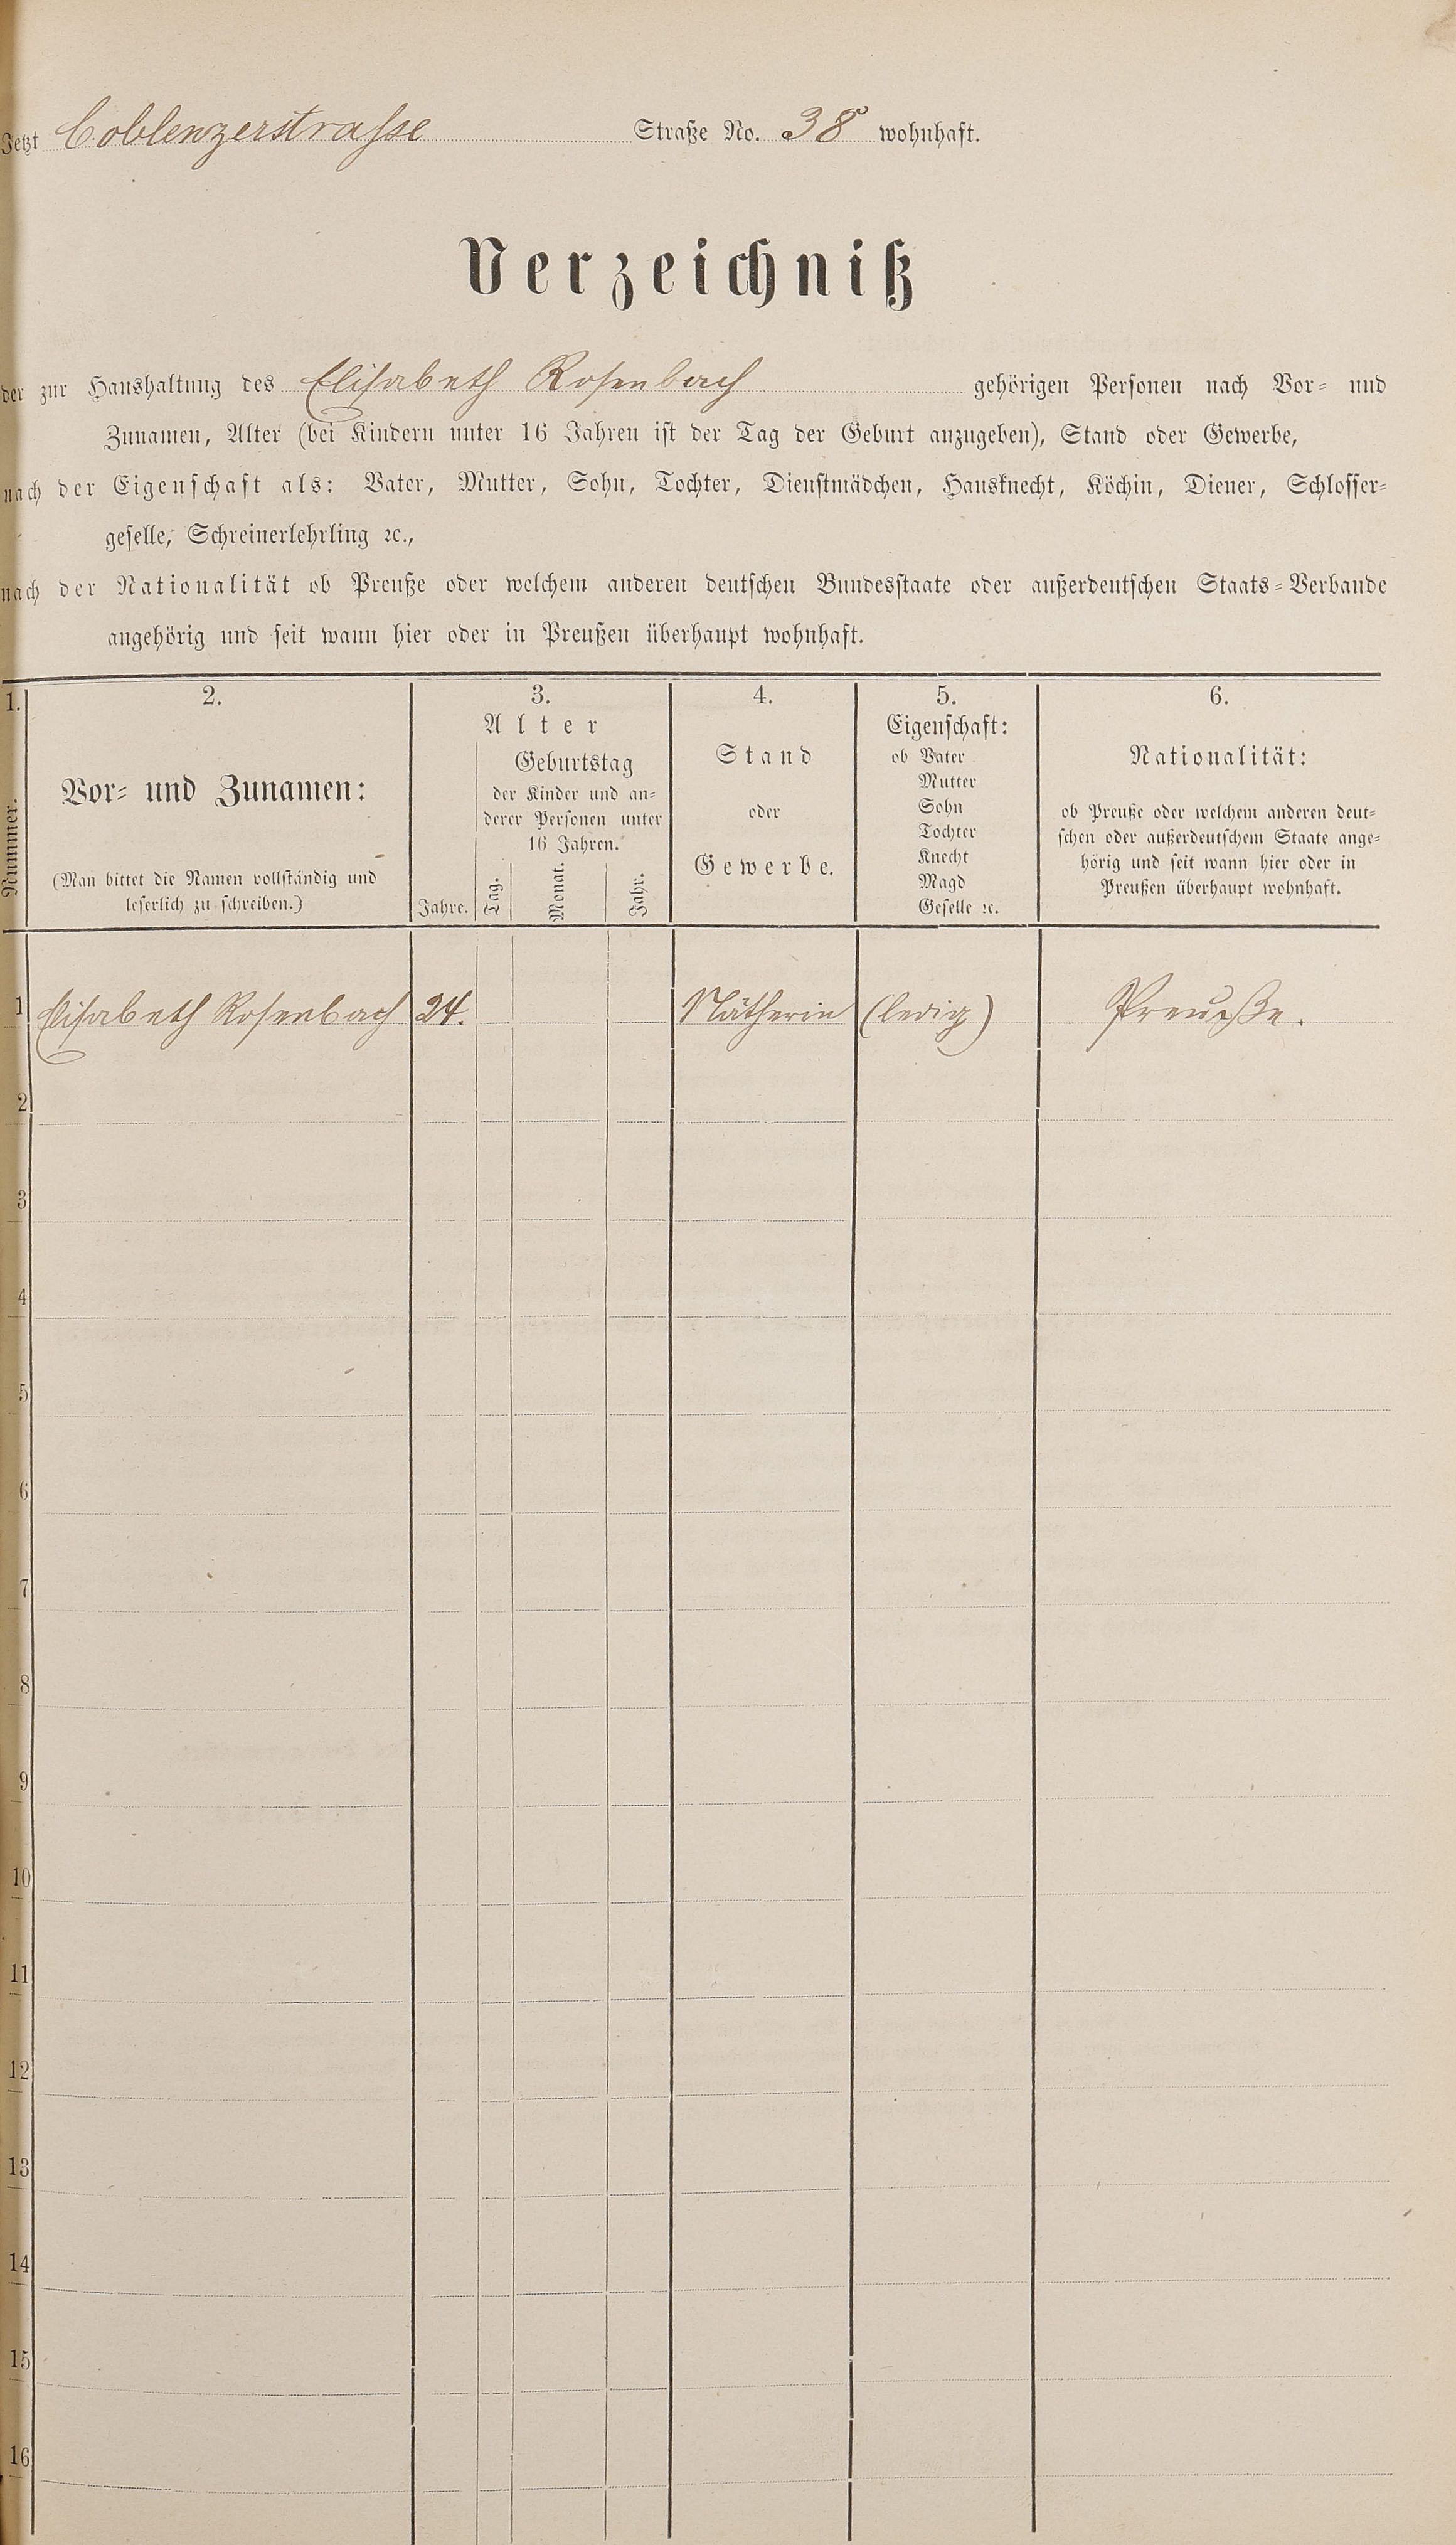 Jetzt Coblenzerstrasse Straße No. 38 wohnhaft.
Verzeichniß
der zur Haushaltung des Elisabeth Rosenbach gehörigen Personen nach Vor- und
Zunamen, Alter (bei Kindern unter 16 Jahren ist der Tag der Geburt anzugeben), Stand oder Gewerbe,
nach der Eigenschaft als: Vater, Mutter, Sohn, Tochter, Dienstmädchen, Hausknecht, Köchin, Diener, Schlosser-
geselle, Schreinerlehrling ꝛc.,
nach der Nationalität ob Preuße oder welchem anderen deutschen Bundesstaate oder außerdeutschen Staats-Verbande
angehörig und seit wann hier oder in Preußen überhaupt wohnhaft.
1.
Nummer.
2.
Vor- und Zunamen:
(Man bittet die Namen vollständig und
leserlich zu schreiben.)
3.
Alter
Jahre.
Geburtstag
der Kinder und an-
derer Personen unter
16 Jahren.
Tag.
Monat.
Jahr.
4.
Stand
oder
Gewerbe.
5.
Eigenschaft:
ob Vater
Mutter
Sohn
Tochter
Knecht
Magd
Geselle ꝛc.
6.
Nationalität:
ob Preuße oder welchem anderen deut-
schen oder außerdeutschem Staate ange-
hörig und seit wann hier oder in
Preußen überhaupt wohnhaft.
1 Elisabeth Rosenbach 24. Nätherin (ledig) Preuße.
2
3
4
5
6
7
8
9
10
11
12
13
14
15
16